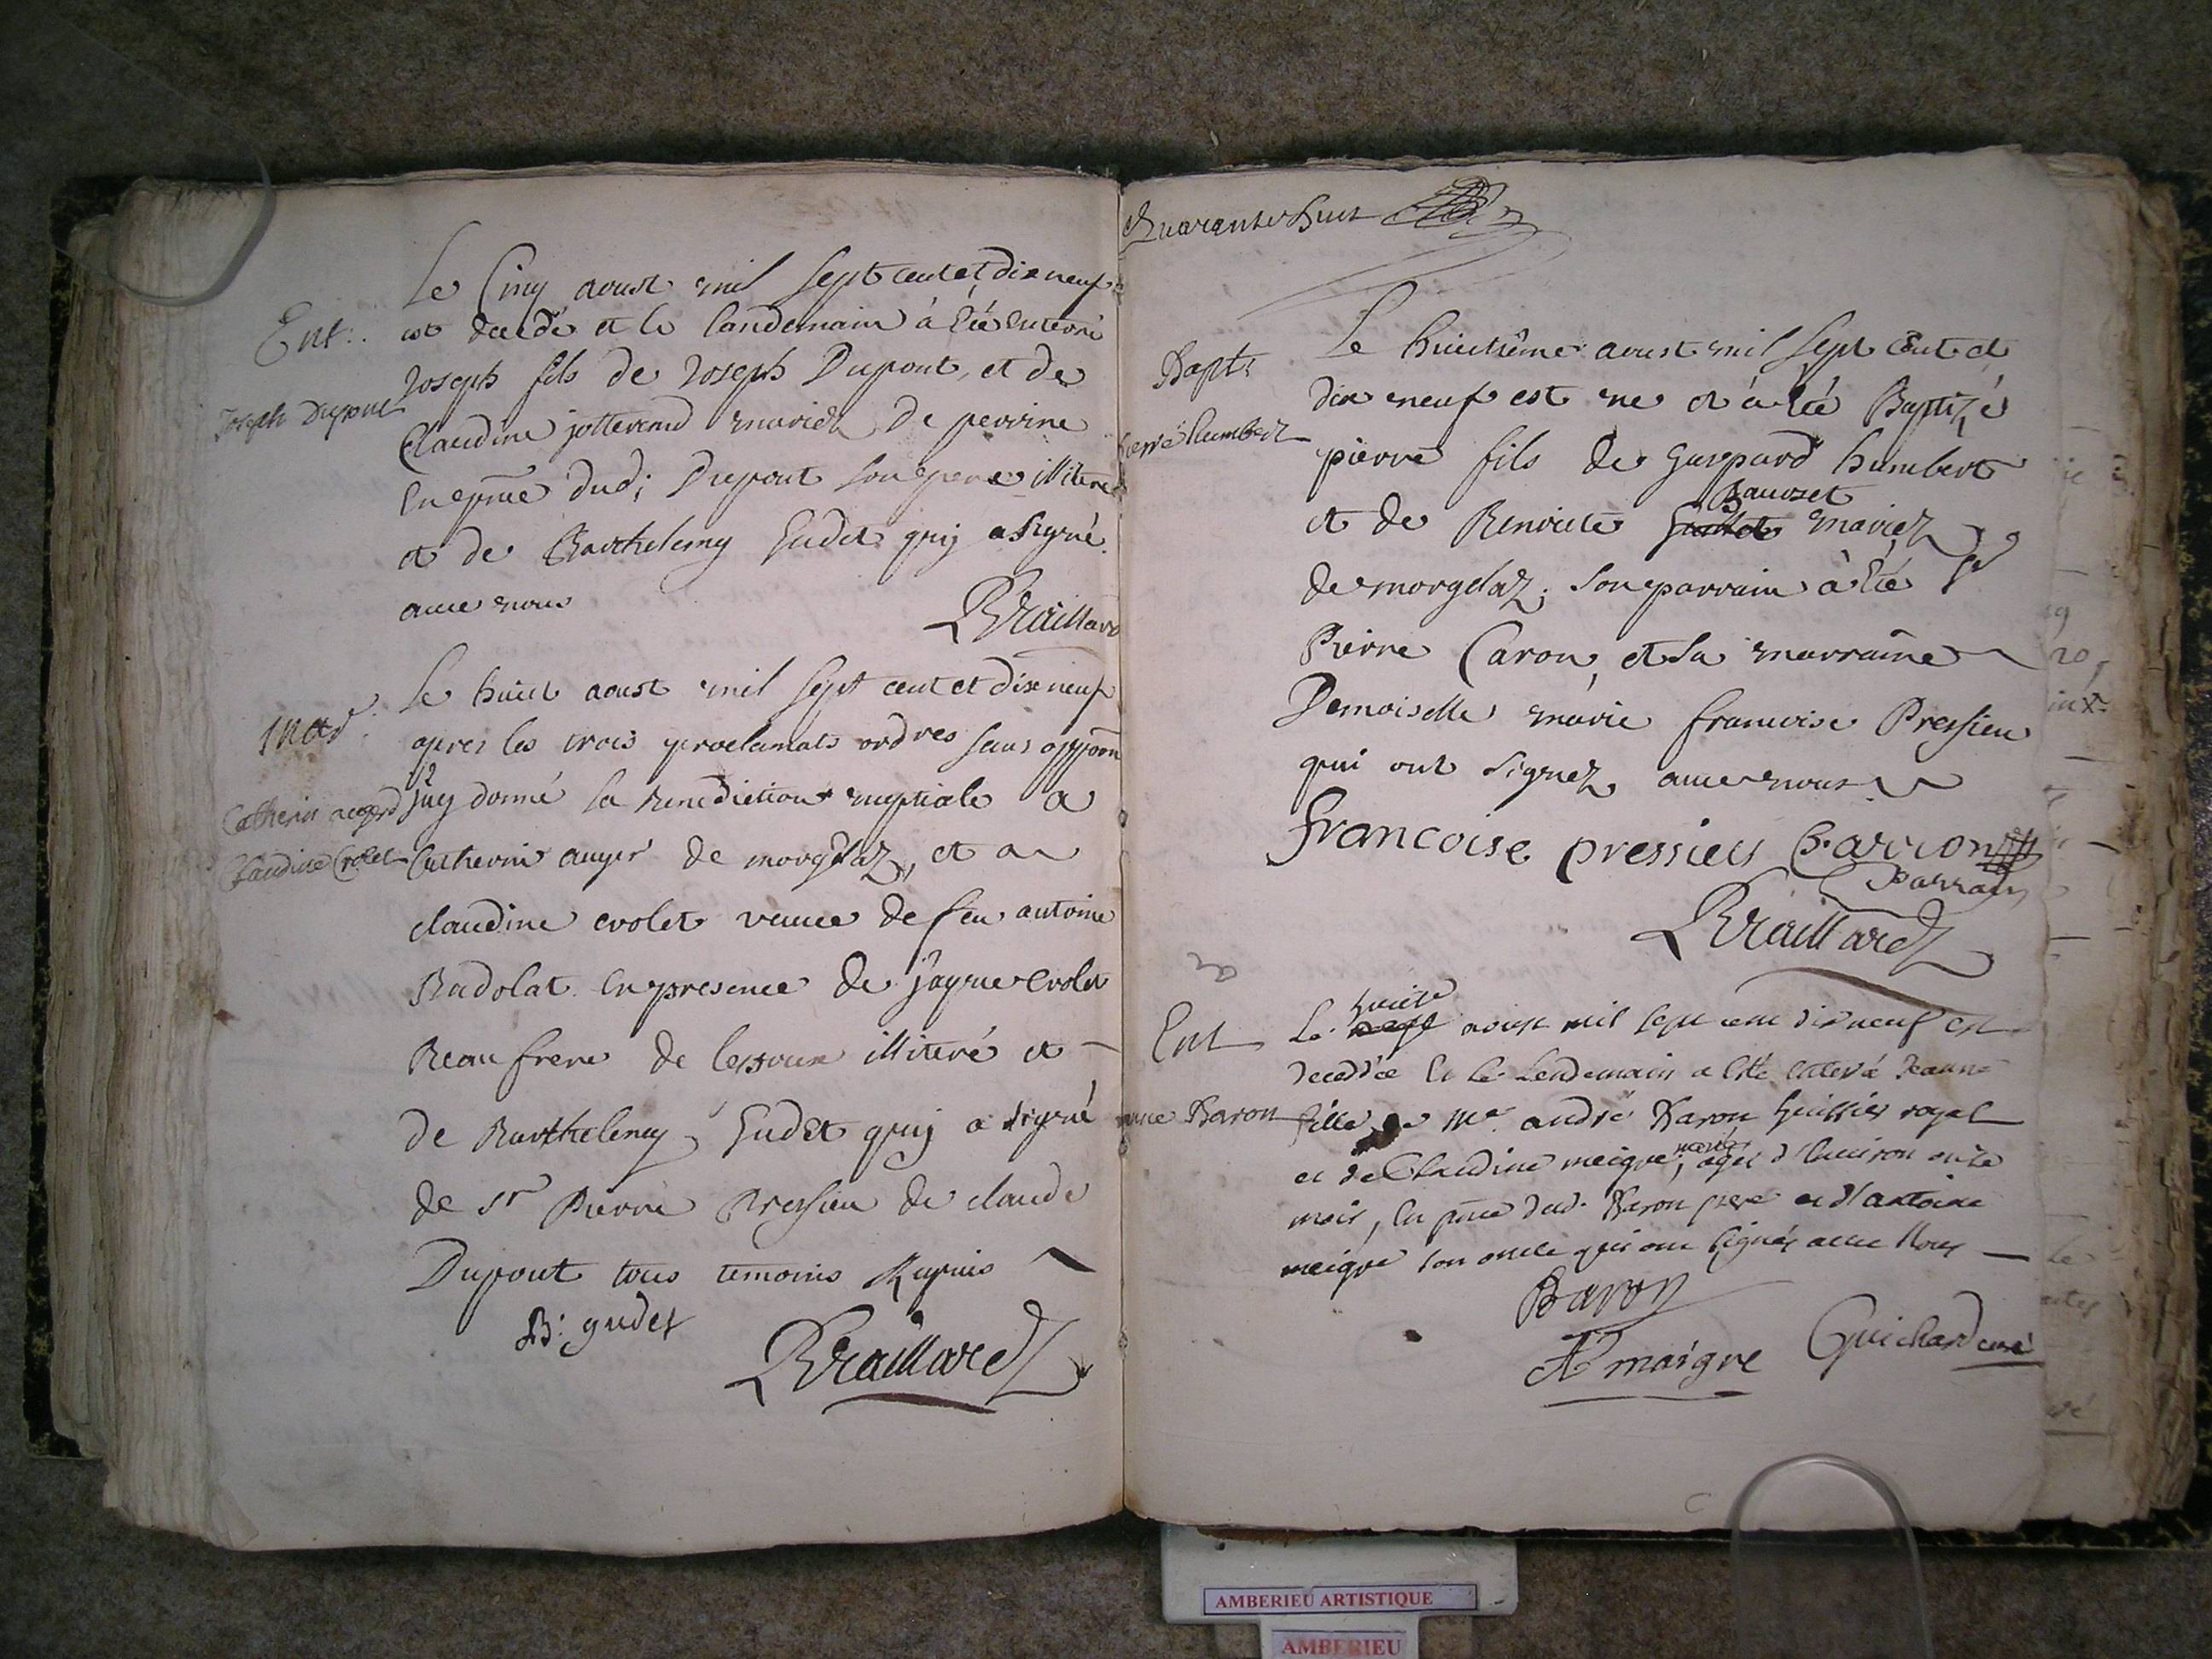 Le Cinq aoust mil sept cent et dix neuf
Ent:. est decedé et le landemain à été enterré
Joseph fils de Joseph Dupont, et de
Joseph Dupont
Claudine jotterand mariez de perrine
En p̃nce dud; Dupont son pere illiteré
et de Barthelemy Gudet quy a signé
avec nous
Braillard
Le huict aoust mil sept cent et dix neuf
Mar.
apres les trois proclamats ord.res sans oppõon
j'ay donné la benediction nuptiale a
Catherin auger de morgelaz, et a
Claudine Crolet
claudine crolet veuve de feu antoine
Badolat en presence de jaque crolet
Beau frere de lespouse illiteré et
de Barthelemy Gudet quy a signé
de sr Pierre Pressieu de claude
Dupont tous temoins Requis
B: gudet
Braillard
Quarante huit
Le huictiême aoust mil sept cent et
Bapt:
dix neuf est ne et à été Baptizé
pierre humbert
pierre fils de Gaspard humbert
Bauozet
et de Benoite mariez
de morgelaz; son parrain à été sr
Pierre Caron, et sa marraine
Demoiselle marie francoise Pressieu
qui ont signez avec nous
francoise pressieu C.arron
Parrain
Braillard
huict
Ent Le aoust mil sept cent dix neuf est
decedée Et le Lendemain a esté enteré Jeanne
Baron fille de Me. andré Baron huissier royal
mariés
et de Claudine meigre, agée d'Environ onze
mois, En p̃nce dud. Baron pere et d'antoine
meigre son oncle qui ont signés avec Nous
Baron
A maigre Guichard curé
AMBERIEU ARTISTIQUE
AMBERIEU